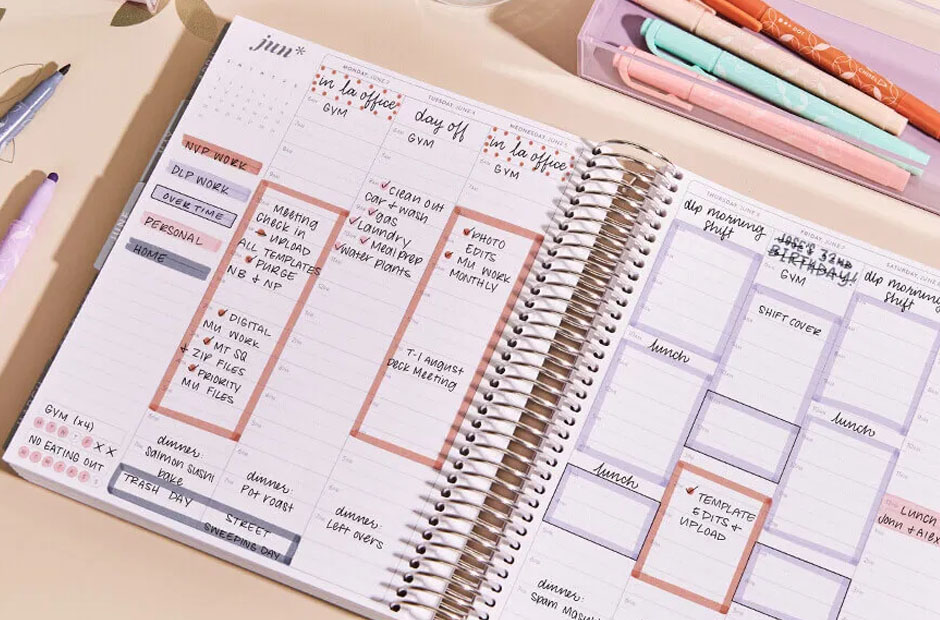 jun*
NVP WORK
DLP WORK
OVERTIME
PERSONAL
HOME
GYM (x4)
NO EATING OUT
MONDAY, JUNE
in la office
GYM
Meeting
Check in
UPLOAD
ALL TEMPLATES
PURGE
NB & NP
DIGITAL
MU WORK
MT SQ
& ZIP FILES
PRIORITY
MU FILES
dinner:
Salmon Sushi
bake
TRASH DAY
TUESDAY, JUNE
day off
GYM
clean out
car & wash
gas
Laundry
Meal prep
Water Plants
dinner:
Pot roast
STREET
SWEEPING DAY
WEDNESDAY, JUNE
in la office
GYM
PHOTO
EDITS
MU WORK
MONTHLY
T-1 August
Deck Meeting
dinner:
Left overs
THURSDAY, JUNE
dlp morning
shift
lunch
lunch
dinner:
Spam
FRIDAY, JUNE
BIRTHDAY!
GYM
SHIFT COVER
TEMPLATE
EDITS &
UPLOAD
SATURDAY, JUNE
dlp morning
shift
lunch
LUNCH
John & Alex